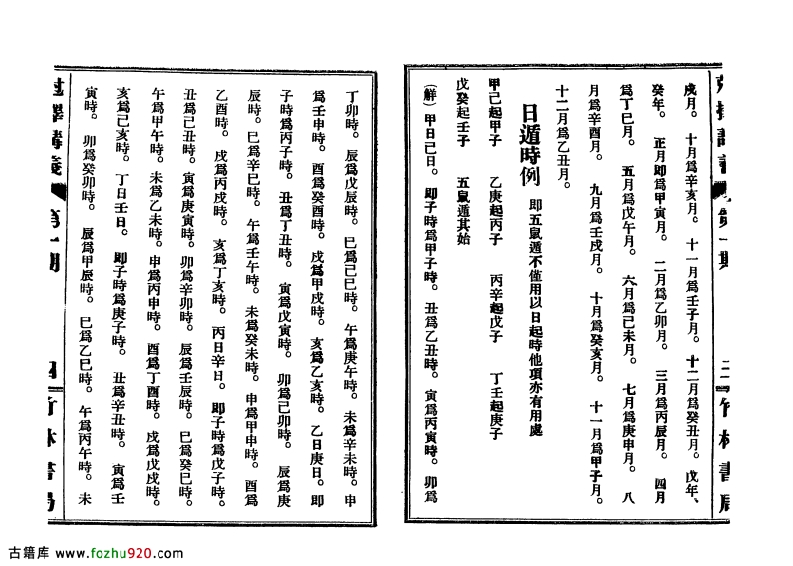 剋擇講義 第一期 三 竹林書局
戌月。十月爲辛亥月。十一月爲壬子月。十二月爲癸丑月。戊年、
癸年。正月即爲甲寅月。二月爲乙卯月。三月爲丙辰月。四月
爲丁巳月。五月爲戊午月。六月爲己未月。七月爲庚申月。八
月爲辛酉月。九月爲壬戌月。十月爲癸亥月。十一月爲甲子月。
十二月爲乙丑月。
日遁時例 即五鼠遁不僅用以日起時他項亦有用處
甲己起甲子 乙庚起丙子 丙辛起戊子 丁壬起庚子
戊癸起壬子 五鼠遁其始
(解)甲日已日。即子時爲甲子時。丑爲乙丑時。寅爲丙寅時。卯爲
丁卯時。辰爲戊辰時。巳爲己巳時。午爲庚午時。未爲辛未時。申
爲壬申時。酉爲癸酉時。戌爲甲戌時。亥爲乙亥時。乙日庚日。即
子時爲丙子時。丑爲丁丑時。寅爲戊寅時。卯爲己卯時。辰爲庚
辰時。巳爲辛巳時。午爲壬午時。未爲癸未時。申爲甲申時。酉爲
乙酉時。戌爲丙戌時。亥爲丁亥時。丙日辛日。即子時爲戊子時。
丑爲己丑時。寅爲庚寅時。卯爲辛卯時。辰爲壬辰時。巳爲癸巳時。
午爲甲午時。未爲乙未時。申爲丙申時。酉爲丁酉時。戌爲戊戌時。
亥爲己亥時。丁日壬日。即子時爲庚子時。丑爲辛丑時。寅爲壬
寅時。卯爲癸卯時。辰爲甲辰時。巳爲乙巳時。午爲丙午時。未
剋擇講義 第一期 四 竹林書局
古籍库 www.fozhu920.com